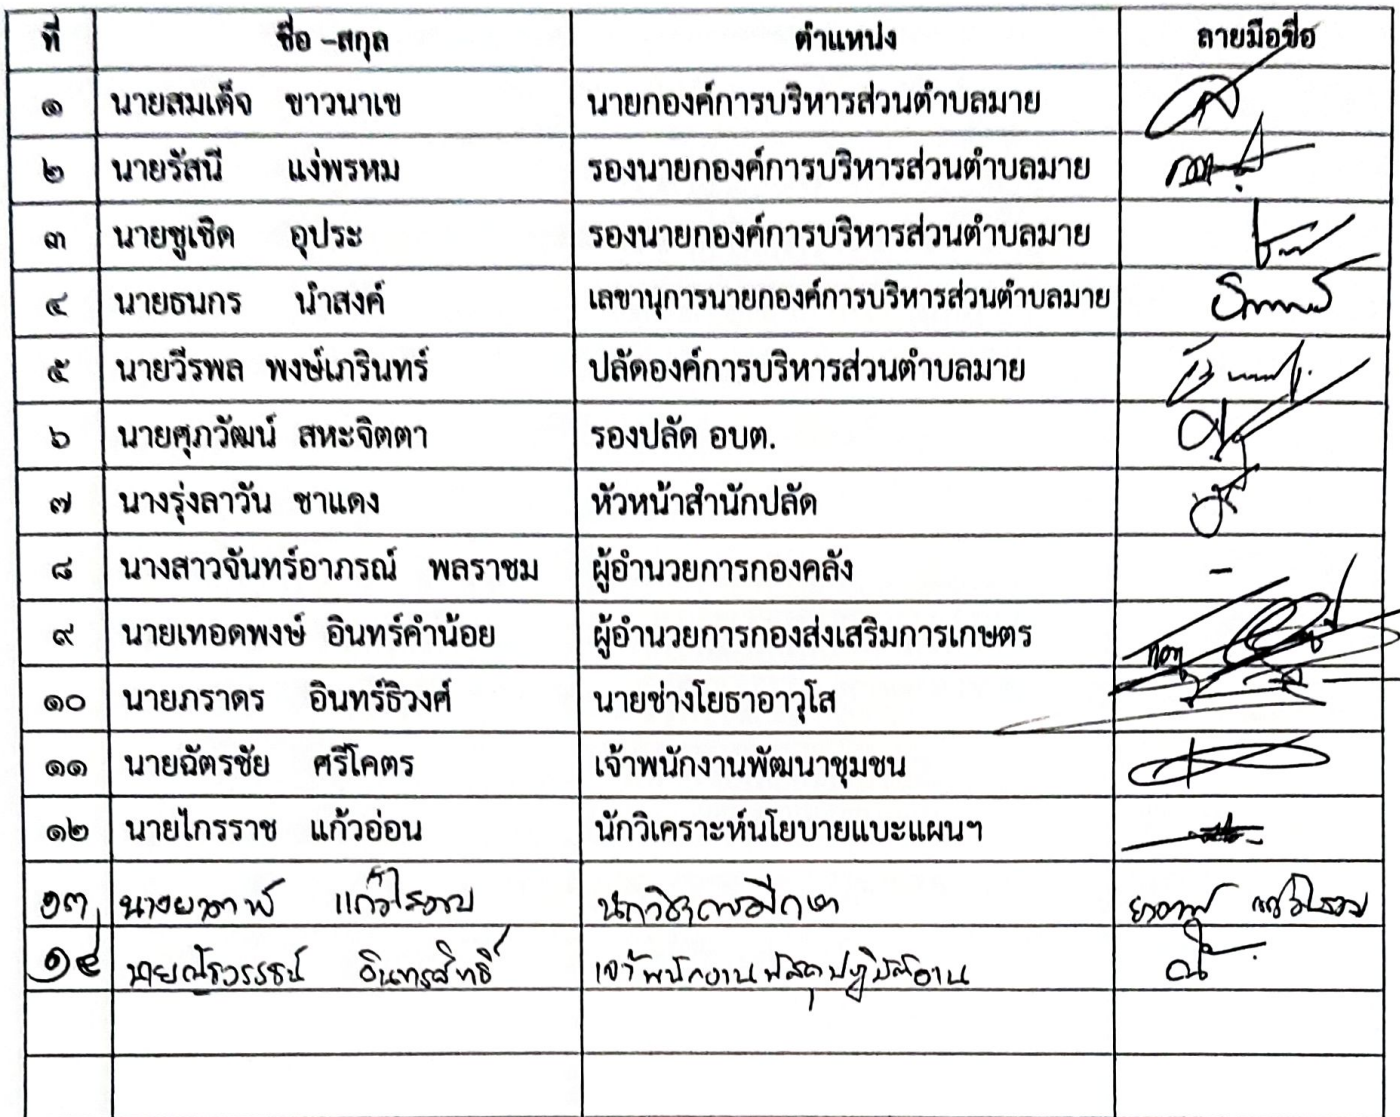 ที่ ชื่อ -สกุล ตำแหน่ง ลายมือชื่อ
๑ นายสมเด็จ ขาวนาเข นายกองค์การบริหารส่วนตำบลมาย
๒ นายรัสนี แง่พรหม รองนายกองค์การบริหารส่วนตำบลมาย
๓ นายชูเชิด อุประ รองนายกองค์การบริหารส่วนตำบลมาย
๔ นายธนกร นำสงค์ เลขานุการนายกองค์การบริหารส่วนตำบลมาย
๕ นายวีรพล พงษ์เภรินทร์ ปลัดองค์การบริหารส่วนตำบลมาย
๖ นายศุภวัฒน์ สหะจิตตา รองปลัด อบต.
๗ นางรุ่งลาวัน ชาแดง หัวหน้าสำนักปลัด
๘ นางสาวจันทร์อาภรณ์ พลราชม ผู้อำนวยการกองคลัง -
๙ นายเทอดพงษ์ อินทร์คำน้อย ผู้อำนวยการกองส่งเสริมการเกษตร
๑๐ นายภราดร อินทร์ธิวงศ์ นายช่างโยธาอาวุโส
๑๑ นายฉัตรชัย ศรีโคตร เจ้าพนักงานพัฒนาชุมชน
๑๒ นายไกรราช แก้วอ่อน นักวิเคราะห์นโยบายแบะแผนฯ
๑๓ นักวิชาการศึกษา
๑๔ อินทรสิทธิ์ เจ้าพนักงานพัสดุปฏิบัติงาน